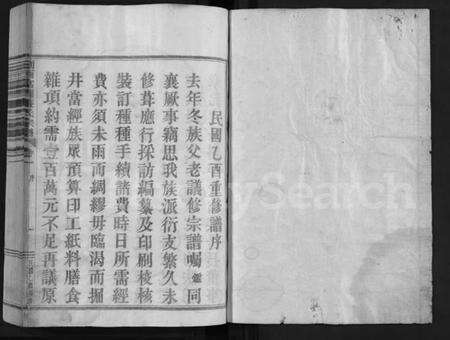 民國乙酉重修譜序
去年冬族父老議修宗譜囑鑑同
襄厥事竊思我族派衍支繁久未
修葺應行採訪編纂及印刷校核
裝訂種種手續諸費時日所需經
費亦須未雨而綢繆毋臨渴而掘
井當經族眾預算印工紙料膳食
雜項約需壹百萬元不足再議原